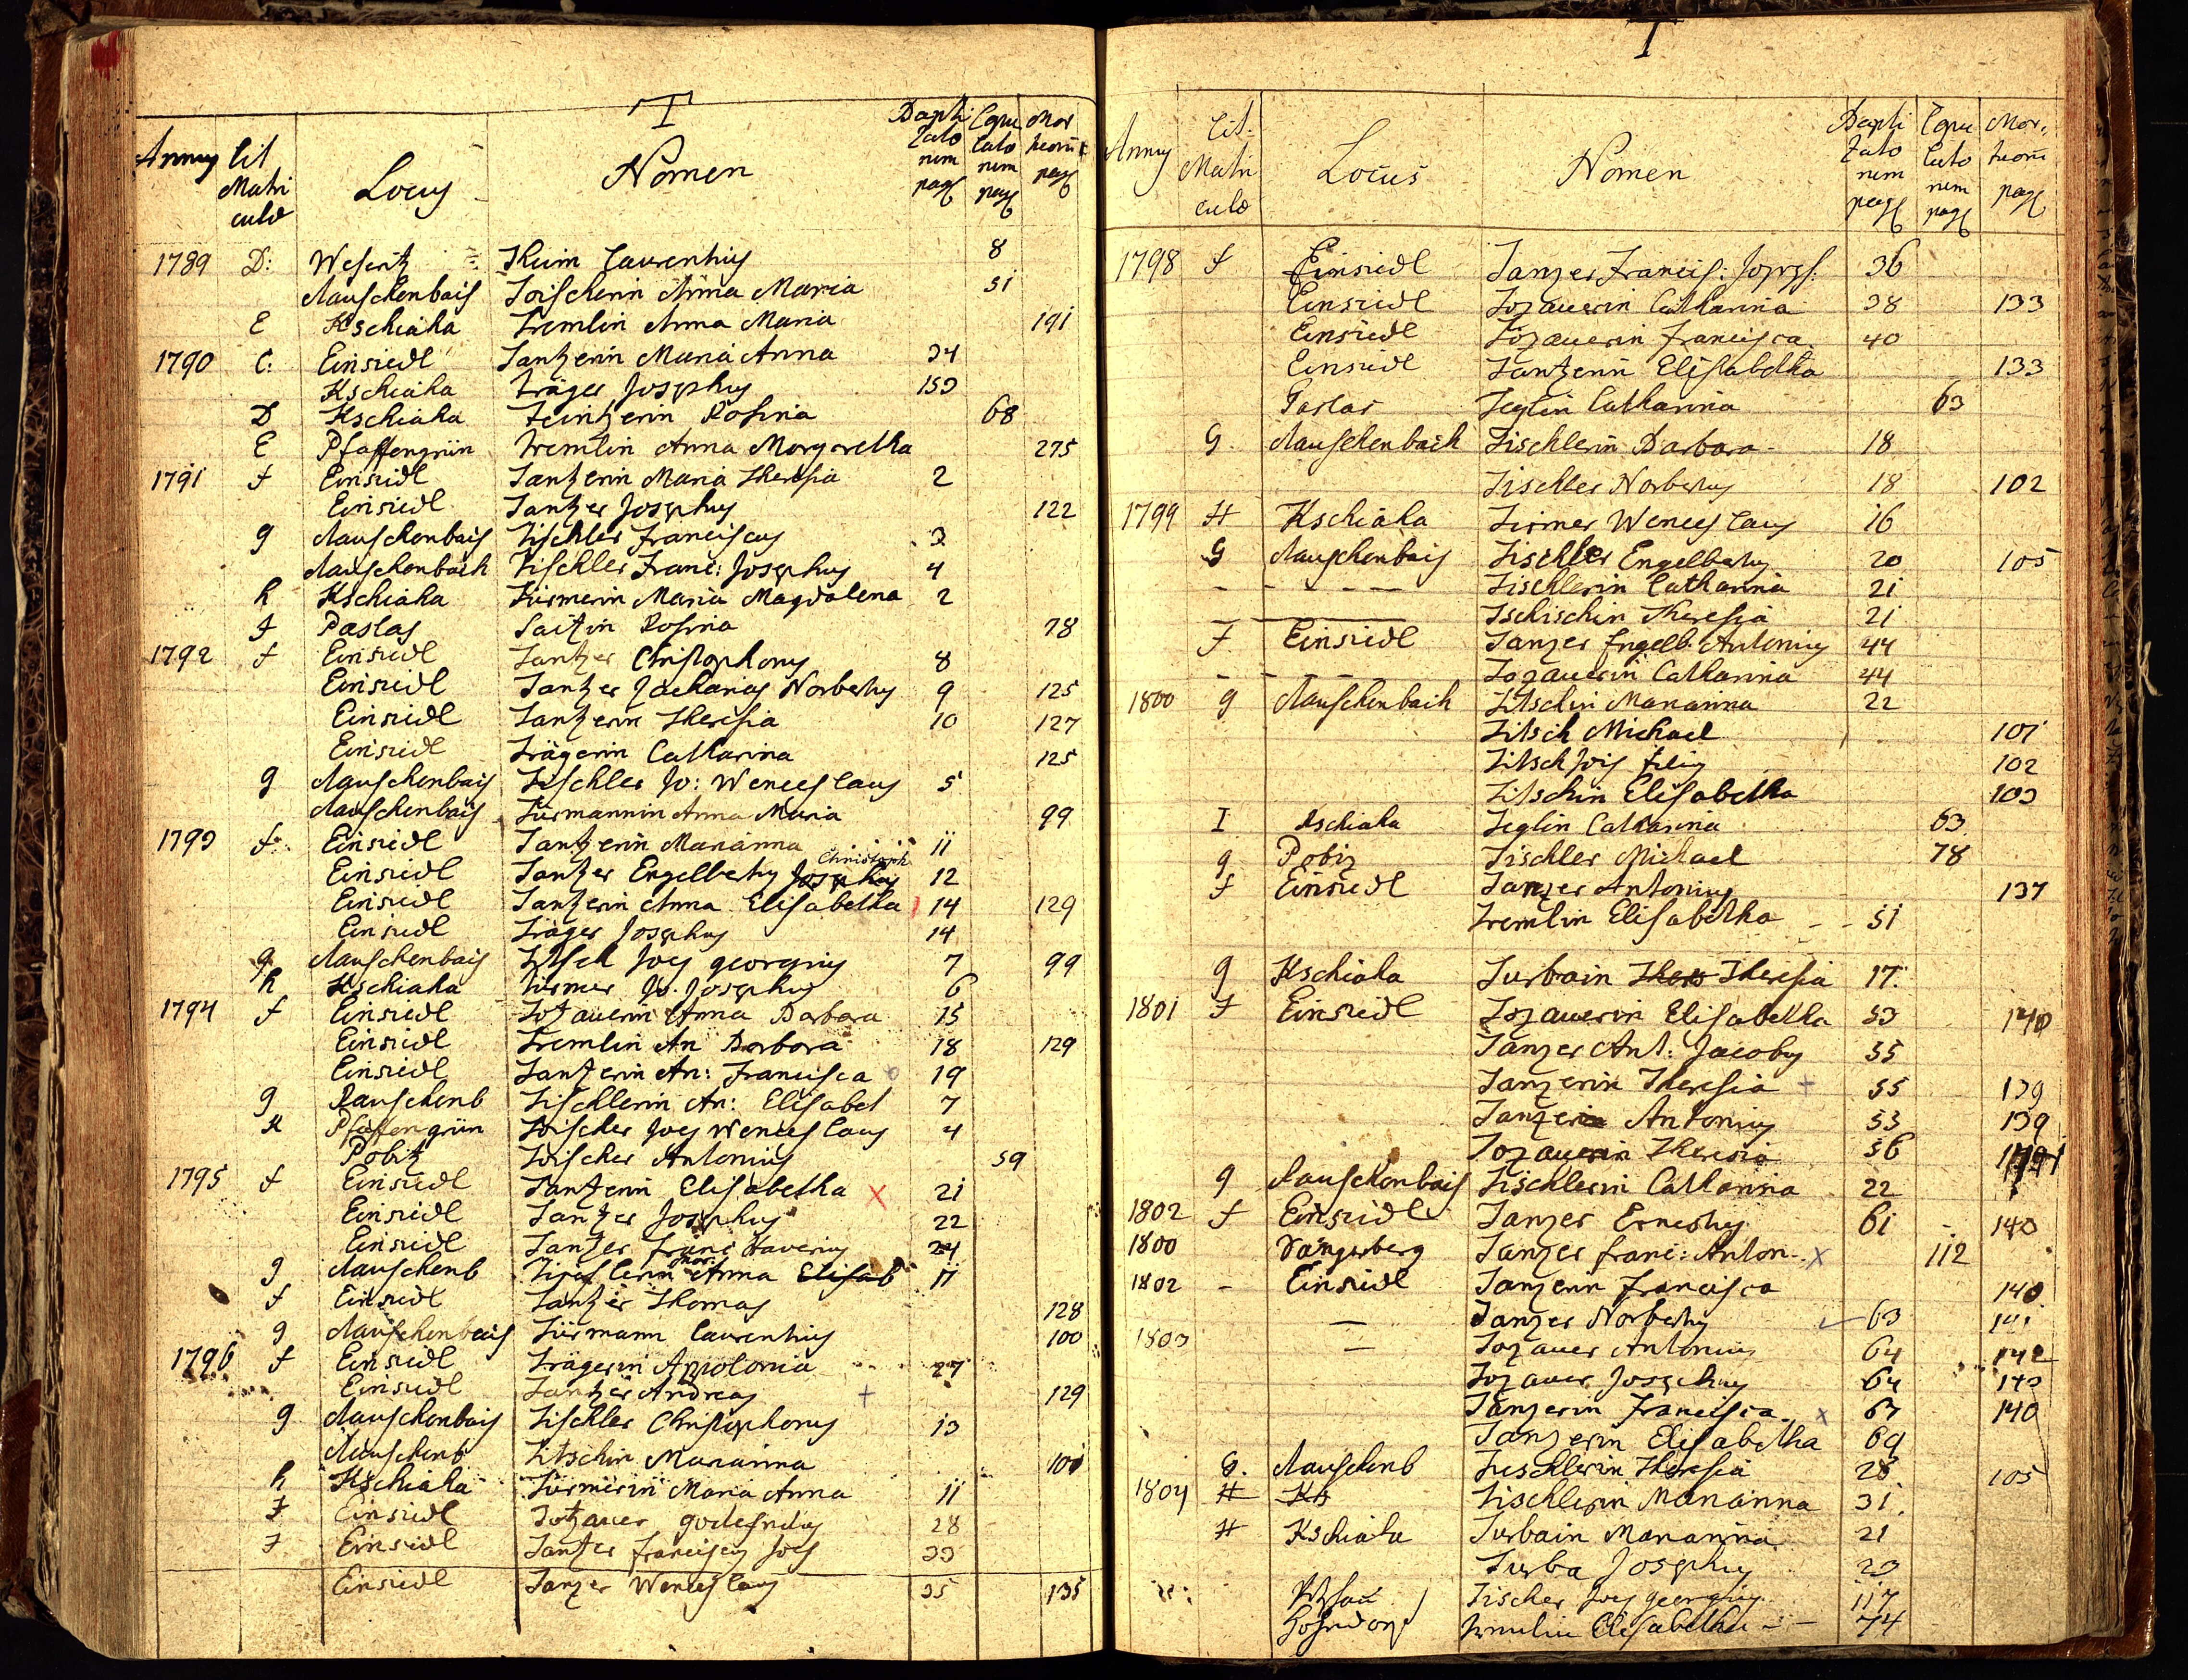 T
Annus Lit Matri culæ Locus Nomen Bapti zato rum pag Copu lato rum pag Mor tuorũ pag
1789 D: Weseritz Theim Laurentius 8
Rauschenbach Toischerin Anna Maria 51
E Kschiaha Tremlin Anna Maria 191
1790 C: Einsiedl Tantzerin Maria Anna 34
Kschiaha Träger Josephus 153
D Kschiaha Teintzerin Rosina 68
E Pfaffengrün Tremlin Anna Margaretha 275
1791 F Einsiedl Tantzerin Maria Theresia 2
Einsiedl Tantzer Josephus 122
g Rauschenbach Tischler Franciscus 3
Rauschenbach Tischler Franc: Josephus 4
h Kschiaha Türmerin Maria Magdalena 2
I Paslas Taitzin Rosina 78
1792 F Einsiedl Tantzer Christophorus 8
Einsiedl Tantzer Zacharias Norbertus 9 125
Einsiedl Tantzerin Theresia 10 127
Einsiedl Trägerin Catharina 125
g Rauschenbach Tischler Jo: Wenceslaus 5
Rauschenbach Türmannin Anna Maria 99
1793 F Einsiedl Tantzerin Marianna 11
Einsiedl Tantzer Engelbertus Josephus Christoph 12
Einsiedl Tantzerin Anna Elisabetha 14 129
Einsiedl Träger Josephus 14
g Rauschenbach Titsch Joes georgius 7 99
h Kschiaha Türmer Jo. Josephus 6
1794 F Einsiedl Totzauerin Anna Barbara 15
Einsiedl Tremlin An Barbara 18 129
Einsiedl Tantzerin An: Francisca 19
g Rauschenb Tischlerin An: Elisabet 7
K Pfaffengrün Toischer Joes Wenceslaus 4
Pobitz Toischer Antonius 59
1795 F Einsiedl Tantzerin Elisabetha X 21
Einsiedl Tantzer Josephus 22
Einsiedl Tantzer Franc Xaverius 24
g Rauschenb Tischlerin Mar: Anna Elisab 11
F Einsiedl Tantzer Thomas 128
g Rauschenbach Türmann Laurentius 100
1796 F Einsiedl Trägerin Appolonia 27
Einsiedl Tantzer Andreas + 129
g Rauschenbach Tischler Christophorus 13
Rauschenb Titschin Marianna 101
h Kschiaha Türmerin Maria Anna 11
F Einsiedl Totzauer godefridus 28
F Einsiedl Tantzer Franciscus Joes 33
Einsiedl Tanzer Wenceslaus 35 135
T
Annus Lit. Matri culæ Locus Nomen Bapti zato rum pag Copu lato rum pag Mor: tuorũ pag
1798 F Einsiedl Tanzer Francis: Joseph: 36
Einsiedl Tozauerin Catharina 38 133
Einsiedl Tozauerin Francisca 40
Einsiedl Tantzerin Elisabetha 133
Paslas Teglin Catharina 63
G Rauschenbach Tischlerin Barbara 18
Tischler Norbertus 18 102
1799 H Kschiaha Tirmer Wenceslaus 16
G Rauschenbach Tischler Engelbertus 20 105
- - - - Tischlerin Catharina 21
Tschischin Theresia 21
F Einsiedl Tanzer Engelb: Antonius 44
- - - Tozauerin Catharina 44
1800 g Rauschenbach Titschin Marianna 22
Titsch Michael 101
Titsch Jois filius 102
Titschin Elisabetha 103
I Kschiaha Teglin Catharina 63
g Pobiz Tischler Michael 78
F Einsiedl Tanzer Antonius 137
Tremlin Elisabetha - - 51
g Kschiaha Turbain Theres Theresia 17
1801 F Einsiedl Tozauerin Elisabetha 53 140
Tanzer Ant: Jacobus 55
Tanzerin Theresia + 55 139
Tanzer Antonius 53 139
Tozauerin Theresia 56
g Rauschenbach Tischlerin Catharina 22
1802 F Einsiedl Tanzer Ernestus 61 140
1800 Vangerberg Tanzer Franc: Anton. X 112
1802 - Einsiedl Tanzerin Francisca 140
— Tanzer Norbertus 63 141
1803 — Tozauer Antonius 64 142
Tozauer Josephus 64 143
Tanzerin Francisca X 67 140
Tanzerin Elisabetha 69
G. Rauschenb Tischlerin Theresia 28 105
1804 H Ks Tischlerin Marianna 31
H Kschiaha Turbain Marianna 21
Turba Josephus 23
Tischer Joes georgius 117
Tremlin Elisabetha - - 74